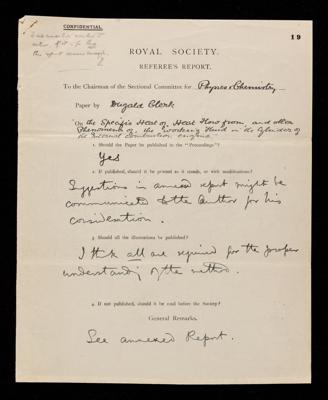 CONFIDENTIAL.
19
ROYAL SOCIETY.
REFEREE'S REPORT.
To the Chairman of the Sectional Committee for Physics & Chemistry
Paper by Dugald Clerk
"On the Specific Heat of, Heat Flow from, and other
Phenomena of, the Working Fluid in the Cylinder of
the Internal Combustion Engine"
1. Should the Paper be published in the "Proceedings"?
Yes
2. If published, should it be printed as it stands, or with modifications?
Suggestions in annexed report might be
communicated to the Author for his
consideration.
3. Should all the illustrations be published?
I think all are required for the proper
understanding of the method.
4. If not published, should it be read before the Society?
General Remarks.
See annexed Report.